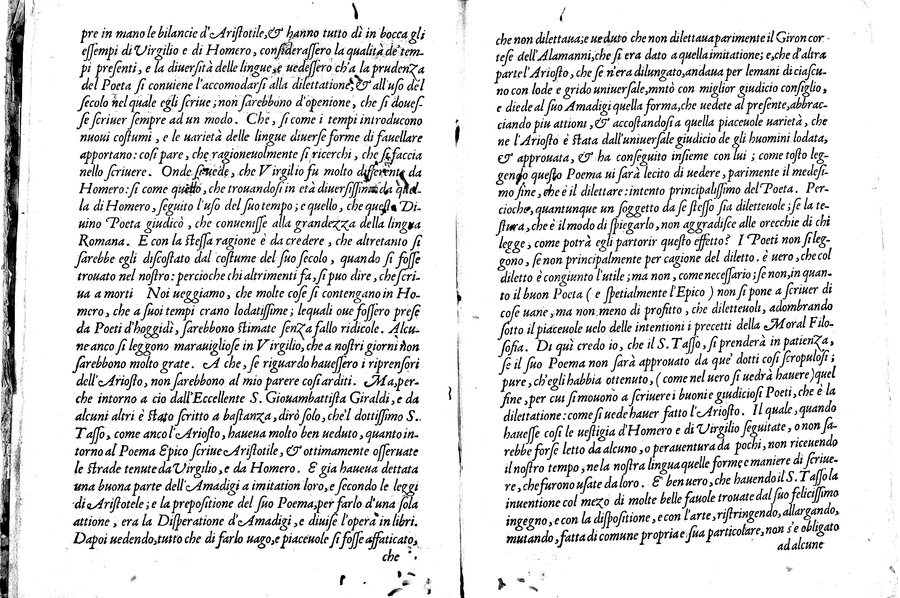 pre in mano le bilancie d'Aristotile, & hanno tutto dì in bocca gli
essempi di Virgilio e di Homero, considerassero la qualità de' tem-
pi presenti, e la diuersità delle lingue, e uedessero ch'a la prudenza
del Poeta si conuiene l'accomodarsi alla dilettatione, & all'uso del
secolo nel quale egli scriue; non sarebbono d'openione, che si doues-
se scriuer sempre ad un modo. Che, si come i tempi introducono
nuoui costumi, e le varietà delle lingue diuerse forme di fauellare
apportano: cosi pare, che ragioneuolmente si ricerchi, che si faccia
nello scriuere. Onde si uede, che Virgilio fu molto differente da
Homero: si come quello, che trouandosi in età diuersissima da quel-
la di Homero, seguito l'uso del suo tempo; e quello, che questo Di-
uino Poeta giudicò, che conuenisse alla grandezza della lingua
Romana. E con la stessa ragione è da credere, che altretanto si
sarebbe egli discostato dal costume del suo secolo, quando si fosse
trouato nel nostro: percioche chi altrimenti fa, si puo dire, che scri-
ua a morti Noi ueggiamo, che molte cose si contengano in Ho-
mero, che a suoi tempi crano lodatissime; lequali oue fossero prese
da Poeti d'hoggidì, sarebbono stimate senza fallo ridicole. Alcu-
ne anco si leggono marauigliose in Virgilio, che a nostri giorni non
sarebbono molto grate. A che, se riguardo hauessero i riprensori
dell'Ariosto, non sarebbono al mio parere cosi arditi. Ma, per-
che intorno a cio dall'Eccellente S. Giouambattista Giraldi, e da
alcuni altri è stato scritto a bastanza, dirò solo, che'l dottissimo S.
Tasso, come anco l'Ariosto, haueua molto ben ueduto, quanto in-
torno al Poema Epico scriue Aristotile, & ottimamente osseruate
le strade tenute da Virgilio, e da Homero. E gia haueua dettata
una buona parte dell'Amadigi a imitation loro, e secondo le leggi
di Aristotele; e la prepositione del suo Poema, per farlo d'una sola
attione, era la Disperatione d'Amadigi, e diuise l'opera in libri.
Dapoi uedendo, tutto che di farlo uago, e piaceuole si fosse affaticato,
che
che non dilettaua; e ueduto che non dilettaua parimente il Giron cor-
tese dell'Alamanni, che si era dato a quella imitatione; e, che d'altra
parte l'Ariosto, che se n'era dilungato, andaua per le mani di ciascu-
no con lode e grido uniuersale, mutò con miglior giudicio consiglio,
e diede al suo Amadigi quella forma, che uedete al presente, abbrac-
ciando piu attioni, & accostandosi a quella piaceuole varietà, che
ne l'Ariosto è stata dall'uniuersale giudicio de gli huomini lodata,
& approuata, & ha conseguito insieme con lui; come tosto leg-
gendo questo Poema ui sarà lecito di uedere, parimente il medesi-
mo fine, che è il dilettare: intento principalissimo del Poeta. Per-
cioche, quantunque un soggetto da se stesso sia dilettevole; se la te-
stura, che è il modo di spiegarlo, non aggradisce alle orecchie di chi
legge, come potrà egli partorir questo effetto? I Poeti non si leg-
gono, se non principalmente per cagione del diletto. è uero, che col
diletto è congiunto l'utile; ma non, come necessario; se non, in quan-
to il buon Poeta ( e spetialmente l'Epico ) non si pone a scriuer di
cose uane, ma non meno di profitto, che diletteuoli, adombrando
sotto il piaceuole uelo delle intentioni i precetti della Moral Filo-
sofia. Di quì credo io, che il S. Tasso, si prenderà in patienza,
se il suo Poema non sarà approuato da que' dotti cosi scropulosi;
pure, ch'egli habbia ottenuto, ( come nel uero si uedrà hauere ) quel
fine, per cui si mouono a scriuere i buoni e giudiciosi Poeti, che è la
dilettatione: come si uede hauer fatto l'Ariosto. Il quale, quando
hauesse cosi le uestigia d'Homero e di Virgilio seguitate, o non sa-
rebbe forse letto da alcuno, o perauentura da pochi, non riceuendo
il nostro tempo, ne la nostra lingua quelle forme e maniere di scriue-
re, che furono usate da loro. E ben uero, che hauendo il S. Tasso la
inuentione col mezo di molte belle fauole trouate dal suo felicissimo
ingegno, e con la dispositione, e con l'arte, ristringendo, allargando,
mutando, fatta di comune propria e sua particolare, non s'e obligato
ad alcune